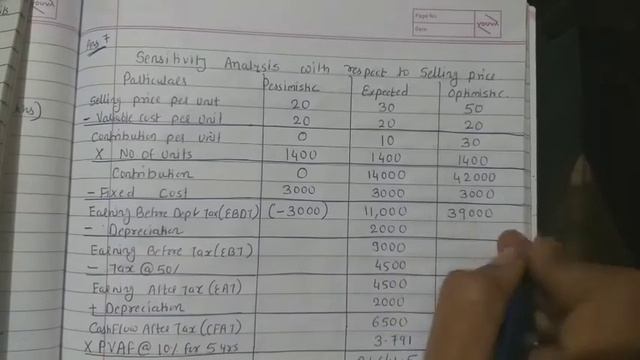 Page No.
Date
youva
Ans 7
Sensitivity Analysis with respect to Selling price
Particulars Pessimistic Expected Optimistic
Selling price per unit 20 30 50
- Variable cost per unit 20 20 20
Contribution per unit 0 10 30
X No of units 1400 1400 1400
Contribution 0 14000 42000
- Fixed Cost 3000 3000 3000
Earning Before Dept Tax (EBDT) (-3000) 11,000 39000
- Depreciation 2000
Earning Before Tax (EBT) 9000
- Tax @ 50% 4500
Earning After Tax (EAT) 4500
+ Depreciation 2000
Cash Flow After Tax (CFAT) 6500
X PVAF @ 10% for 5 yrs 3.791